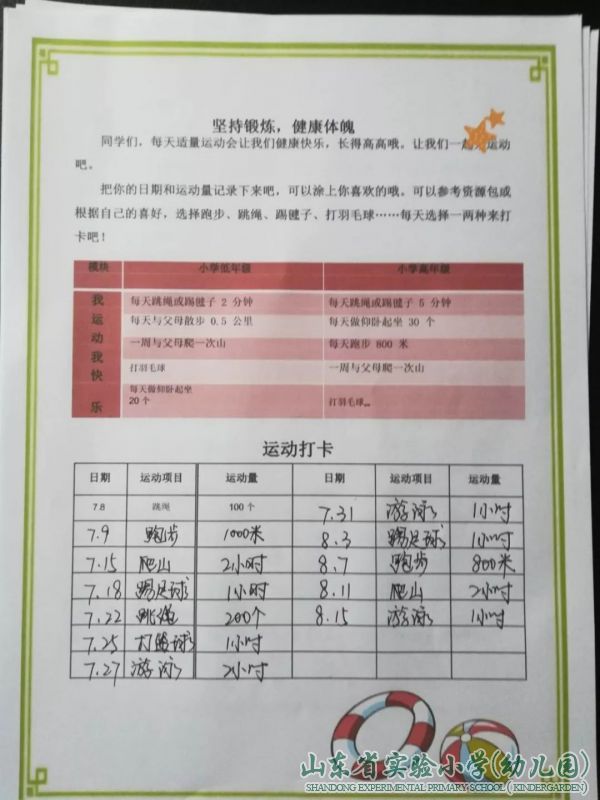 坚持锻炼，健康体魄
同学们，每天适量运动会让我们健康快乐，长得高高哦。让我们一起 运动
吧。
把你的日期和运动量记录下来吧，可以涂上你喜欢的哦。可以参考资源包或
根据自己的喜好，选择跑步、跳绳、踢毽子、打羽毛球……每天选择一两种来打
卡吧！
模块 小学低年级 小学高年级
我运动我快乐
每天跳绳或踢毽子 2 分钟 每天跳绳或踢毽子 5 分钟
每天与父母散步 0.5 公里 每天做仰卧起坐 30 个
一周与父母爬一次山 每天跑步 800 米
打羽毛球 一周与父母爬一次山
每天做仰卧起坐
20 个 打羽毛球……
运动打卡
日期 运动项目 运动量 日期 运动项目 运动量
7.8 跳绳 100 个 7.31 游泳 1小时
7.9 跑步 1000米 8.3 踢足球 1小时
7.15 爬山 2小时 8.7 跑步 800米
7.18 踢足球 1小时 8.11 爬山 2小时
7.22 跳绳 200个 8.15 游泳 1小时
7.25 打篮球 1小时
7.27 游泳 2小时
山东省实验小学(幼儿园)
SHANDONG EXPERIMENTAL PRIMARY SCHOOL (KINDERGARDEN)